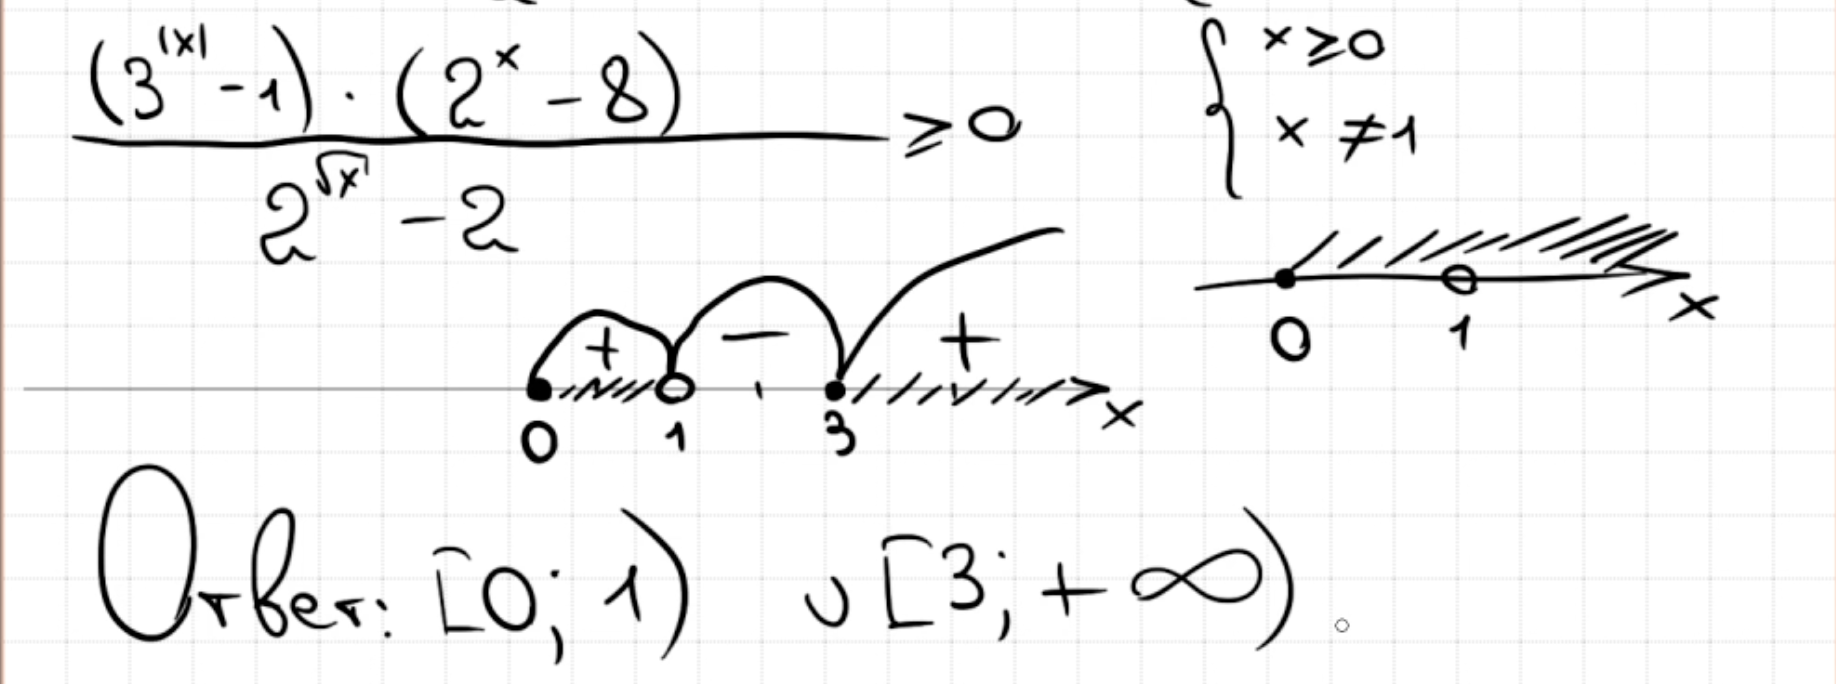 (3^|x| - 1) · (2^x - 8)
2^√x - 2
≥ 0
x ≥ 0
x ≠ 1
0 1 x
+ − +
0 1 3 x
Ответ: [0; 1) ∪ [3; + ∞).